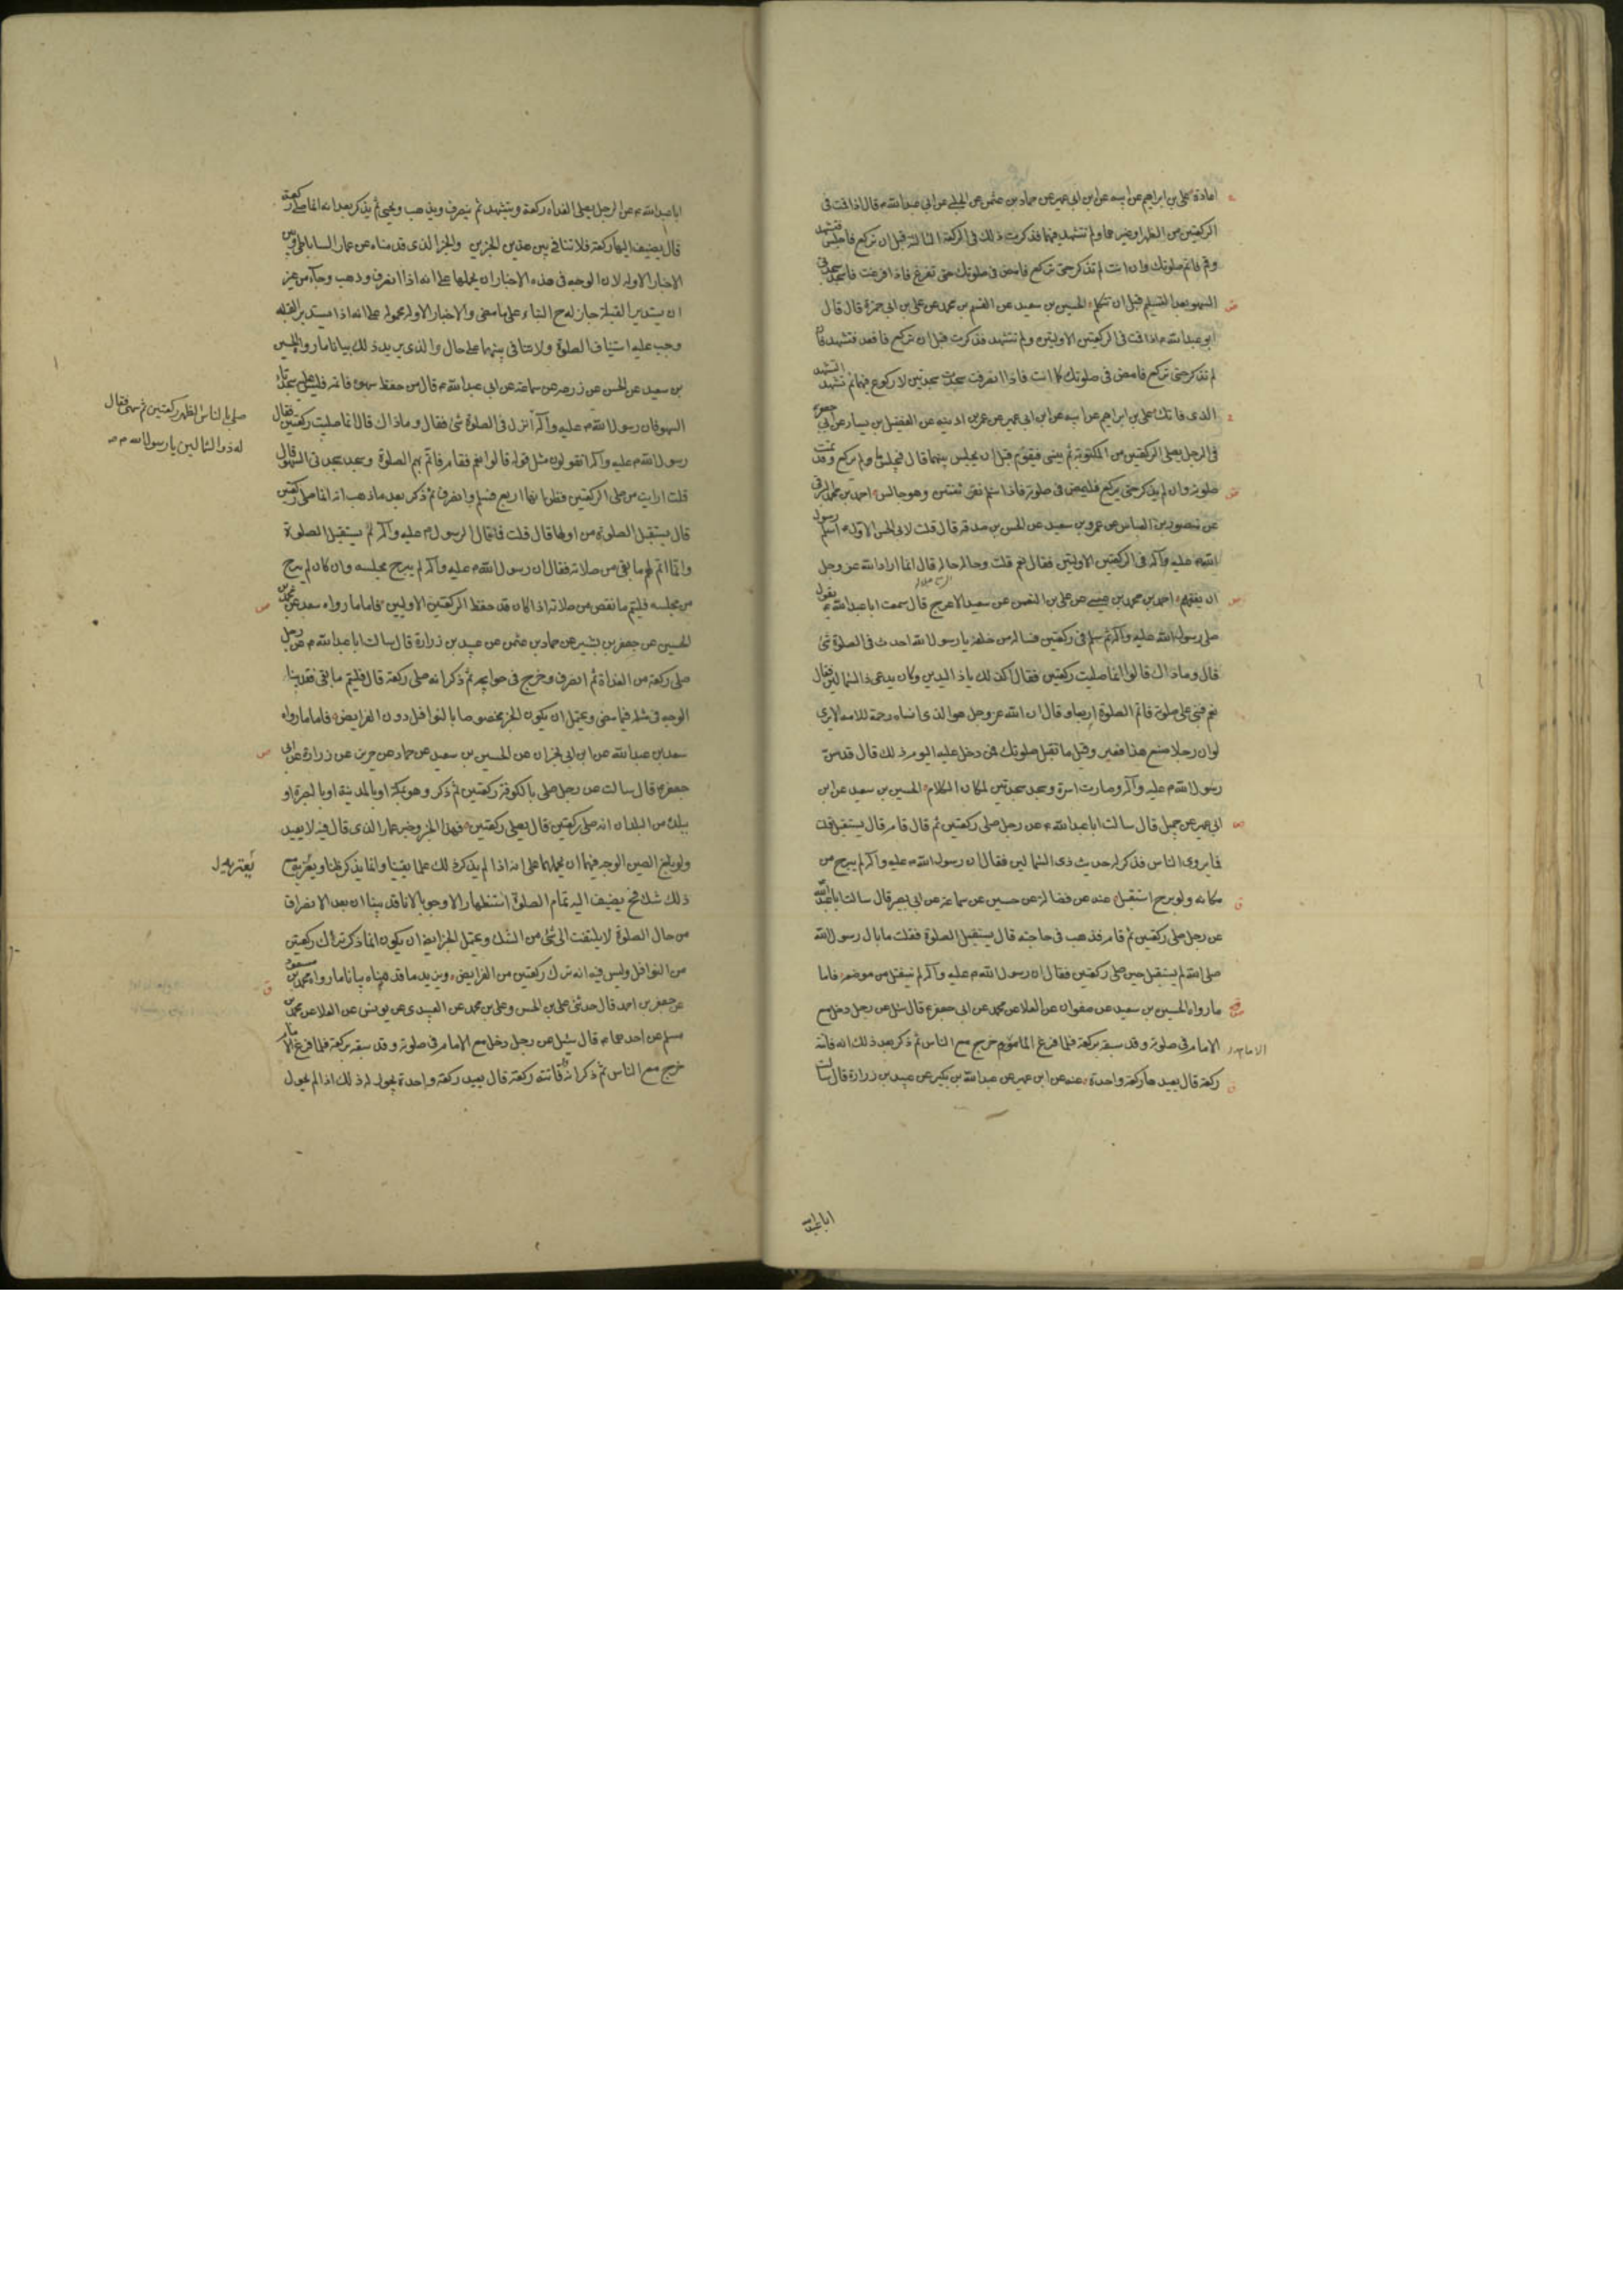 اعادة علي بن ابراهيم عن ابيه عن ابن ابي عمير عن حماد بن عثمن عن الحلبي عن ابي عبدالله ع قال اذا قمت في
الركعتين من الظهر او غيرها ولم تتشهد فيهما فذكرت ذلك في الركعة الثالثة قبل ان تركع فاجلس فتشهد
وقم فاتم صلوتك وان انت لم تذكر حتى تركع فامض في صلوتك حتى تفرغ فاذا فرغت فاسجد سجدتي
السهو بعد التسليم قبل ان تتكلم الحسين بن سعيد عن القسم بن محمد عن علي بن ابي حمزة قال قال
ابو عبدالله ع اذا قمت في الركعتين الاولتين ولم تتشهد فذكرت قبل ان تركع فاقعد فتشهد وان
لم تذكر حتى تركع فامض في صلوتك كما انت فاذا انصرفت سجدت سجدتين لا ركوع فيهما ثم تشهد التشهد
الذي فاتك علي بن ابراهيم عن ابيه عن ابن ابي عمير عن عمر بن اذينه عن الفضيل بن يسار عن ابي جعفر
في الرجل يصلي الركعتين من المكتوبة ثم ينسى فيقوم قبل ان يجلس بينهما قال فليجلس ما لم يركع وقد تمت
صلوته وان لم يذكر حتى يركع فليمض في صلوته فاذا سلم نقر ثنتين وهو جالس احمد بن محمد البرقي
عن منصور بن العباس عن عمرو بن سعيد عن الحسن بن صدقه قال قلت لابي الحسن الاول ع اسلم رسول
الله ص عليه وآله في الركعتين الاولتين فقال نعم قلت وحاله حاله قال انما اراد الله عز وجل
ان يفقههم احمد بن محمد بن عيسى عن علي بن النعمن عن سعيد الاعرج قال سمعت ابا عبدالله ع يقول
صلى رسول الله عليه وآله ثم سلم في ركعتين فساله من خلفه يا رسول الله احدث في الصلوة شئ
قال وما ذاك قالوا انما صليت ركعتين فقال اكذلك يا ذا اليدين وكان يدعى ذا الشمالين فقال
نعم فبنى على صلوته فاتم الصلوة اربعا وقال ان الله عز وجل هو الذي انساه رحمة للامه الا ترى
لو ان رجلا صنع هذا لعير وقيل ما تقبل صلوتك فمن دخل عليه اليوم ذلك قال قد سن
رسول الله ص عليه وآله وصارت اسوة وسجد سجدتين لمكان الكلام الحسين بن سعيد عن ابن
ابي عمير عن جميل قال سالت ابا عبدالله ع عن رجل صلى ركعتين ثم قال قام قال يستقبل قلت
فما يروى الناس فذكر له حديث ذي الشمالين فقال ان رسول الله ص عليه وآله لم يبرح من
مكانه ولو برح استقبل عنه عن فضالة عن حسين عن سماعة عن ابي بصير قال سالت ابا عبدالله
عن رجل صلى ركعتين ثم قام فذهب في حاجته قال يستقبل الصلوة فقلت ما بال رسول الله
صلى الله لم يستقبل حين صلى ركعتين فقال ان رسول الله ص عليه وآله لم ينفتل من موضعه فاما
ما رواه الحسين بن سعيد عن صفوان عن العلا عن محمد عن ابي جعفر ع قال سئل عن رجل دخل مع
الامام في صلوته وقد سبقه بركعة فلما فرغ الماموم خرج مع الناس ثم ذكر بعد ذلك انه فاتته
الامام
ركعة قال يعيدها ركعة واحدة عنه عن ابن عمير عن عبدالله بن بكير عن عبيد بن زرارة قال سالت
ابا عبدالله
ابا عبدالله ع عن الرجل يصلي الغداه ركعة ويتشهد ثم ينصرف ويذهب ويجئ ثم يذكر بعد انه انما صلى ركعة
قال يضيف اليها ركعة فلا تنافي بين هذين الخبرين والخبر الذي قدمناه عن عمار الساباطي وبين
الاخبار الاوله لان الوجه في هذه الاخبار ان نحملها على انه اذا انصرف وذهب وجآء من غير
ان يستدبر القبلة جاز له ح البناء على ما مضى والاخبار الاوله محموله على انه اذا استدبر القبله
وجب عليه استيناف الصلوة ولا تنافي بينهما على حال والذي يزيد ذلك بيانا ما رواه الحسين
بن سعيد عن الحسن عن زرعه عن سماعته عن ابي عبدالله ع قال من حفظ سهوه فاتمه فليس عليه سجدتا
السهو فان رسول الله ص عليه وآله
صلى بالناس الظهر ركعتين ثم سهى فقال
له ذو الشمالين يا رسول الله ص
انزل في الصلوة شئ فقال وما ذاك قال انما صليت ركعتين فقال
رسول الله ص عليه وآله اتقولون مثل قوله قالوا نعم فقام فاتم بهم الصلوة وسجد سجدتي السهو قال
قلت ارايت من صلى الركعتين فظن انها اربع فسلم وانصرف ثم ذكر بعد ما ذهب انه انما صلى ركعتين
قال يستقبل الصلوة من اولها قال قلت فما بال الرسول ص عليه وآله لم يستقبل الصلوة
وانما اتم لهم ما بقي من صلاته فقال ان رسول الله ص عليه وآله لم يبرح مجلسه وان كان لم يبرح
من مجلسه فليتم ما نقص من صلاته اذا كان قد حفظ الركعتين الاوليين فاما ما رواه سعد عن محمد بن
الحسين عن جعفر بن بشير عن حماد بن عثمن عن عبيد بن زرارة قال سالت ابا عبدالله ع عن رجل
صلى ركعة من الغداة ثم انصرف وخرج في حوايجه ثم ذكر انه صلى ركعة قال فليتم ما بقي فقد بينا
الوجه في مثله فيما مضى ويحتمل ان يكون الخبر مخصوصا بالنوافل دون الفرايض فاما ما رواه
سعد بن عبدالله عن ابن ابي نجران عن الحسين بن سعيد عن حماد عن حريز عن زرارة عن ابي
جعفر ع قال سالت عن رجل صلى بالكوفة ركعتين ثم ذكر وهو بمكة او بالمدينة او بالبصرة او
ببلدة من البلدان انه صلى ركعتين قال يصلي ركعتين فهذا الخبر وخبر عمار الذي قال فيه لا يعيد
ولو بلغ الصين الوجه فيهما ان نحملهما على انه اذا لم يذكر ذلك علما يقينا وانما يذكر ظنا ويعتريه مع
ذلك شك فح يضيف اليه تمام الصلوة استظهارا لا وجوبا لانا قد بينا ان بعد الانصراف
من حال الصلوة لا يلتفت الى شئ من الشك ويحتمل الخبر ايضا ان يكون انما ذكر ترك ركعتين
من النوافل وليس فيه انه ترك ركعتين من الفرايض ويزيد ما قدمناه بيانا ما رواه محمد بن مسعود
عن جعفر بن احمد قال حدثني علي بن الحسن وعلي بن محمد عن العبيدي عن يونس عن العلا عن محمد بن
مسلم عن احدهما ع قال سئل عن رجل دخل مع الامام في صلوته وقد سبقه بركعة فلما فرغ الامام
خرج مع الناس ثم ذكر انه فاتته ركعة قال يعيد ركعة واحدة يجوز له ذلك اذا لم يحول